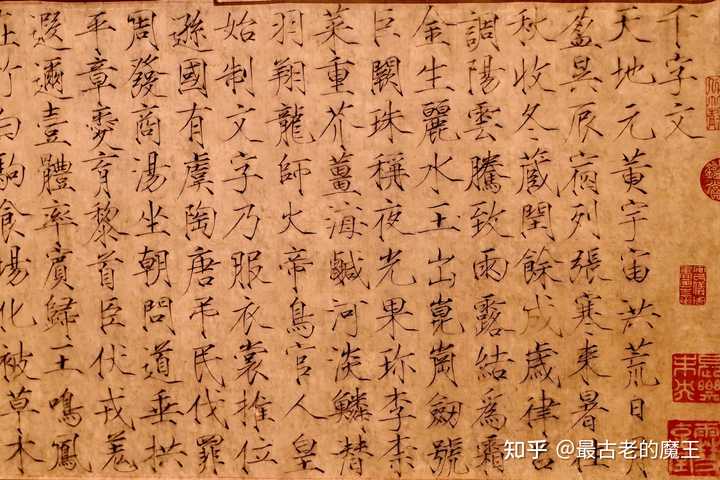 千字文
天地元黃宇宙洪荒日月
盈昃辰宿列張寒來暑往
秋收冬藏閏餘成歲律呂
調陽雲騰致雨露結爲霜
金生麗水玉出崑崗劒號
巨闕珠稱夜光果珍李柰
菜重芥薑海鹹河淡鱗潛
羽翔龍師火帝鳥官人皇
始制文字乃服衣裳推位
遜國有虞陶唐弔民伐罪
周發商湯坐朝問道垂拱
平章愛育黎首臣伏戎羌
遐邇壹體率賓歸王鳴鳳
在竹白駒食場化被草木
知乎 @最古老的魔王